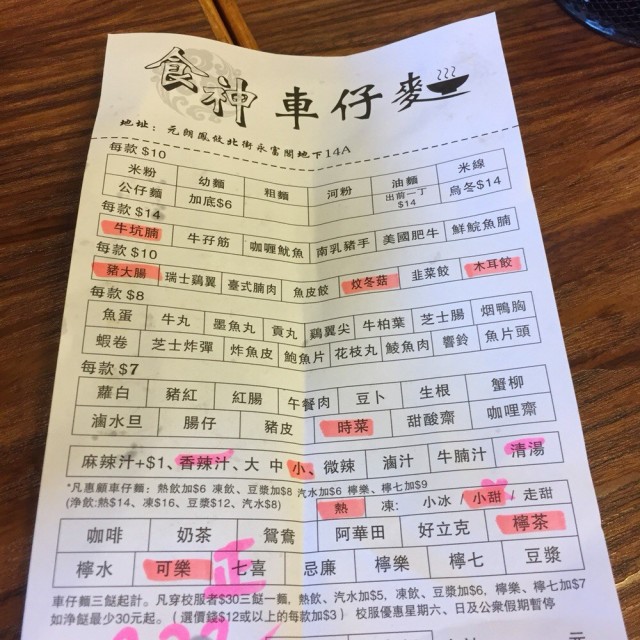 食神 車仔麥
地址：元朗鳳攸北街永富閣地下14A
每款 $10
米粉 幼麵 粗麵 河粉 油麵 米線
公仔麵 加底$6 出前一丁$14 烏冬$14
每款 $14
牛坑腩 牛孖筋 咖喱魷魚 南乳豬手 美國肥牛 鮮鯇魚腩
每款 $10
豬大腸 瑞士鷄翼 臺式腩肉 魚皮餃 炆冬菇 韮菜餃 木耳餃
每款 $8
魚蛋 牛丸 墨魚丸 貢丸 鷄翼尖 牛柏葉 芝士腸 烟鴨胸
蝦卷 芝士炸彈 炸魚皮 鮑魚片 花枝丸 鯪魚肉 響鈴 魚片頭
每款 $7
蘿白 豬紅 紅腸 午餐肉 豆卜 生根 蟹柳
滷水旦 腸仔 豬皮 時菜 甜酸齋 咖哩齋
麻辣汁+$1、香辣汁、大 中 小、微辣 滷汁 牛腩汁 清湯
*凡惠顧車仔麵：熱飲加$6 凍飲、豆漿加$8 汽水加$6 檸樂、檸七加$9
(淨飲:熱$14、凍$16、豆漿$12、汽水$8) 熱 凍: 小冰 / 小甜 / 走甜
咖啡 奶茶 鴛鴦 阿華田 好立克 檸茶
檸水 可樂 七喜 忌廉 檸樂 檸七 豆漿
車仔麵三餸起計。凡穿校服者$30三餸一麵，熱飲、汽水加$5，凍飲、豆漿加$6，檸樂、檸七加$7
如淨餸最少30元起。（選價錢$12或以上的每款加$3） 校服優惠星期六、日及公衆假期暫停